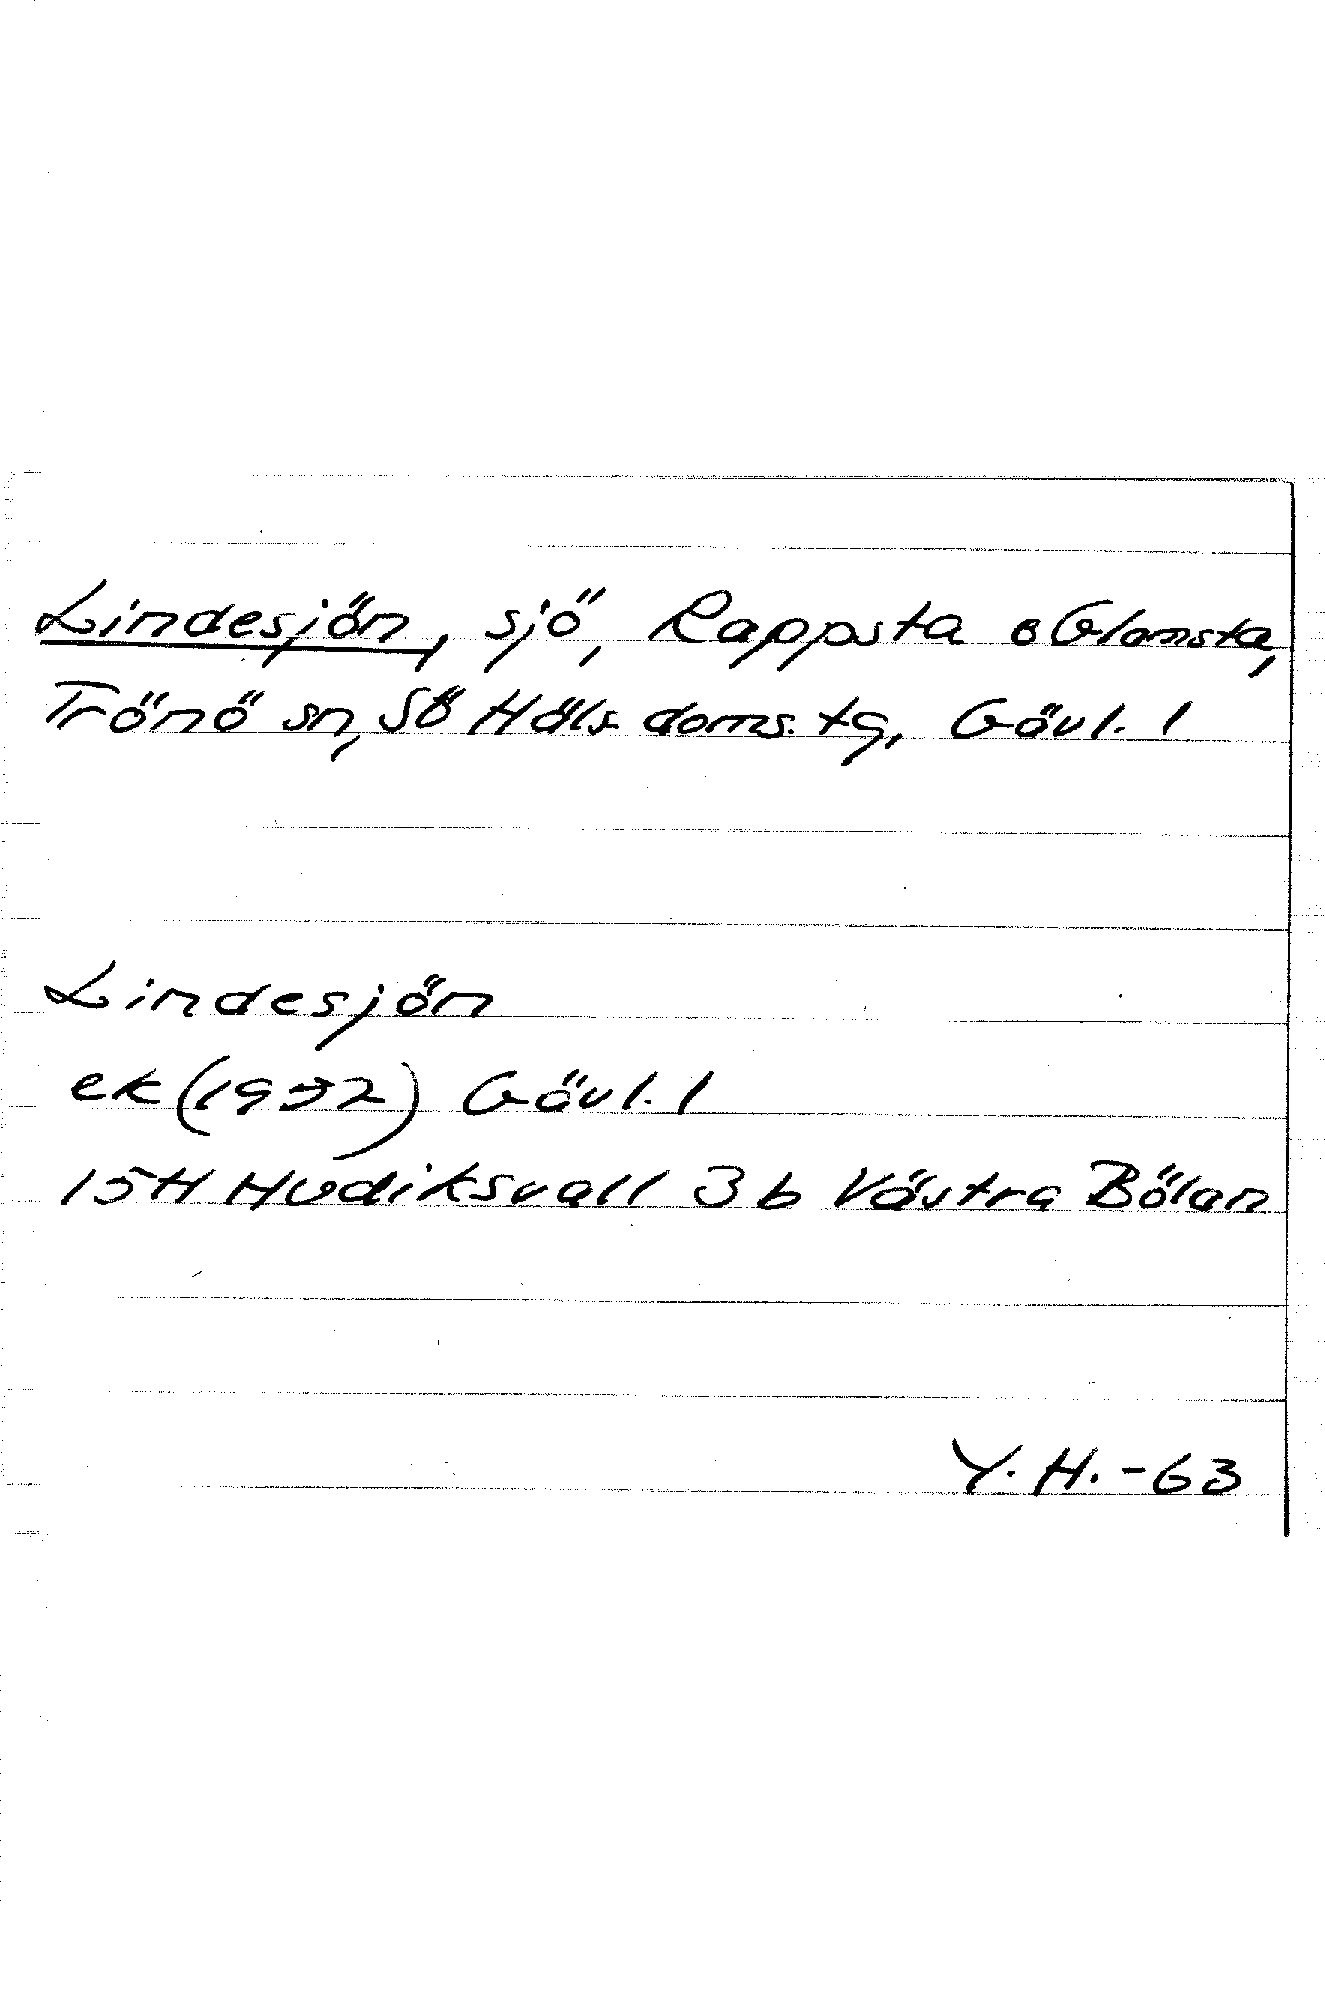 Lindesjön, sjö, Rappsta o Glamsta,
Trönö sn, Sö Häls. doms. tg, Gävl. l
Lindesjön
ek (1972) Gävl. l
15H Hudiksvall 3b Västra Bölan
Y. H. -63